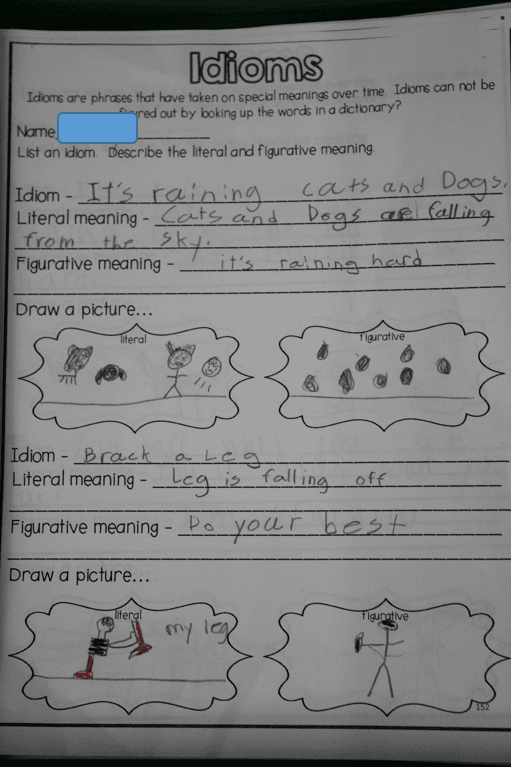 Idioms
Idioms are phrases that have taken on special meanings over time. Idioms can not be
out by looking up the words in a dictionary?
Name
List an idiom. Describe the literal and figurative meaning.
Idiom - It's raining cats and Dogs.
Literal meaning - Cats and Dogs are falling
from the sky.
Figurative meaning - it's raining hard
Draw a picture...
literal
figurative
Idiom - Brack a Leg
Literal meaning - Leg is falling off
Figurative meaning - Do your best
Draw a picture...
literal
my leg
figurative
152